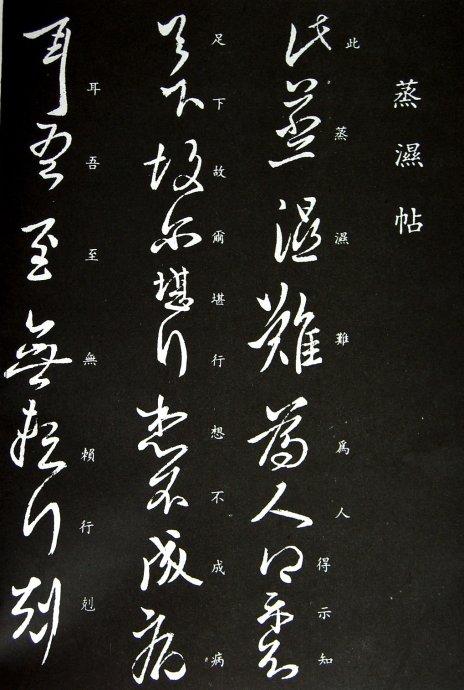 蒸濕帖
此蒸濕難爲人得示知
此蒸濕難爲人得示知
足下故爾堪行想不成病
足下故爾堪行想不成病
耳吾至無賴行剋
耳吾至無賴行剋